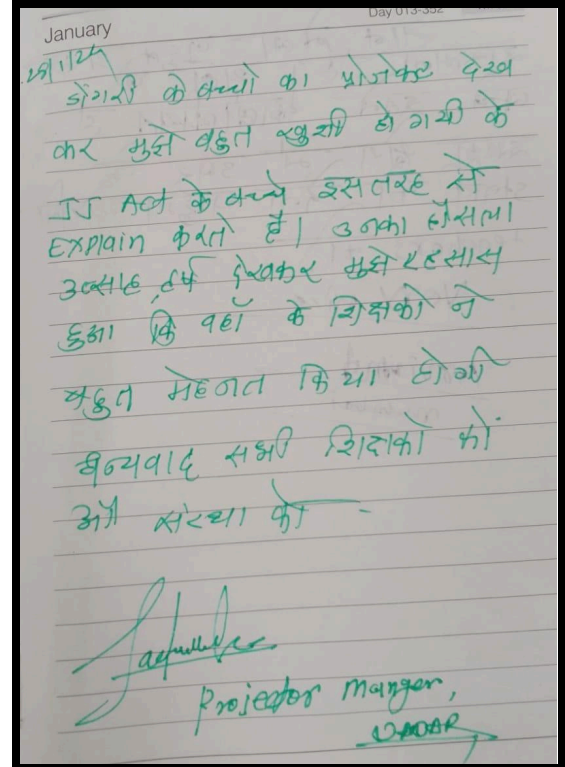 January
Day 013-352
25/1/24
डोंगरी के बच्चो का प्रोजेक्ट देख
कर मुझे बहुत खुशी हो गयी के
JJ Act के बच्चे इस तरह से
Explain करते है। उनका हौसला
उत्साह, हर्ष देखकर मुझे एहसास
हुआ कि वहाँ के शिक्षको ने
बहुत मेहनत किया होगी
धन्यवाद सभी शिक्षको कों
औ संस्था को -
Projector Manger,